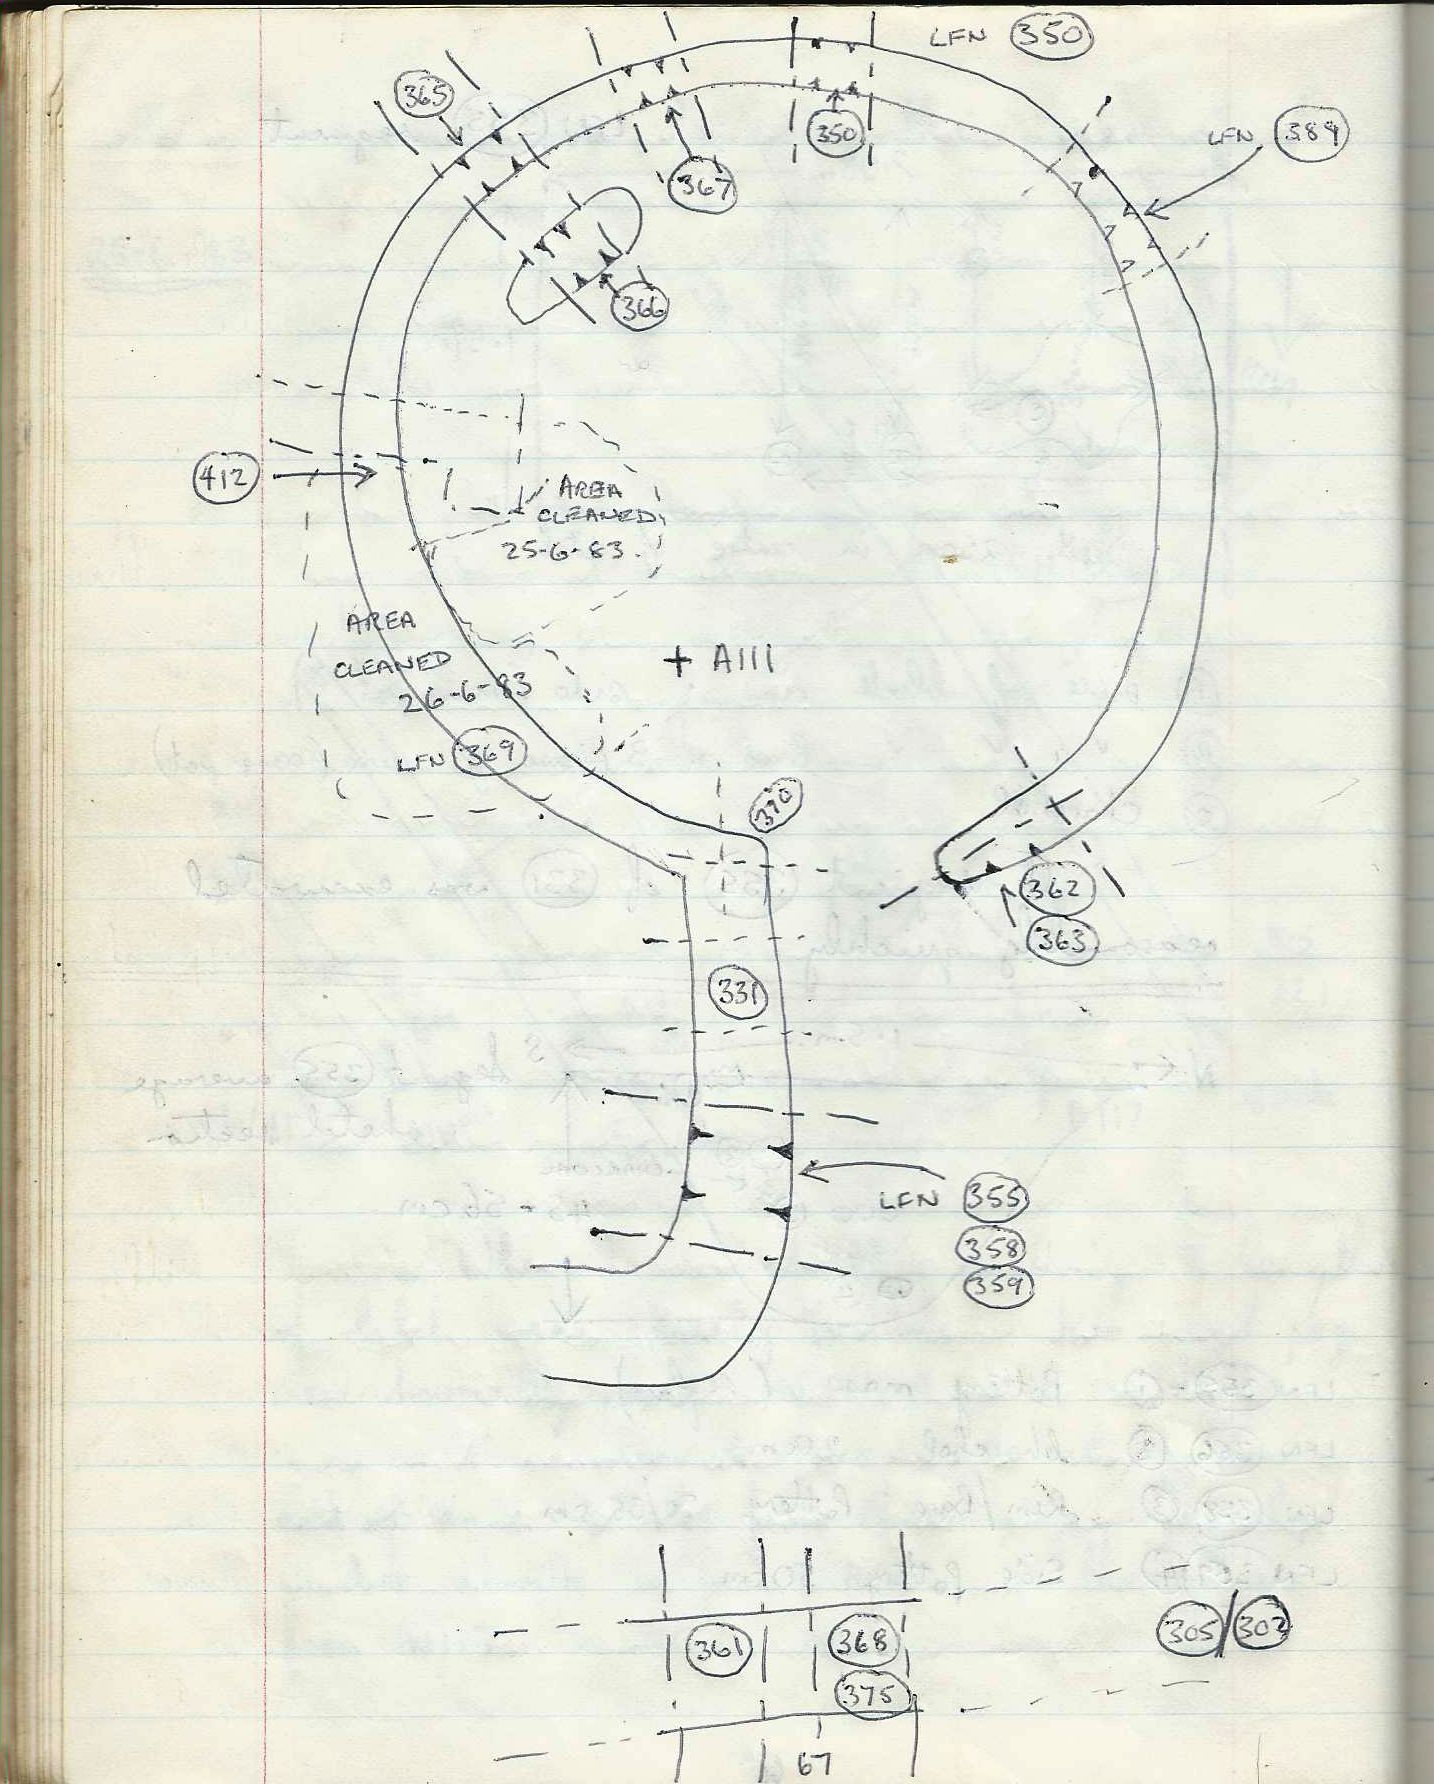 LFN 350
365
350
LFN 389
367
366
412
AREA
CLEANED
25-6-83.
AREA
CLEANED
26-6-83
+ A111
LFN 369
390
362
363
331
LFN 355
358
359
361
368
305/302
375
67